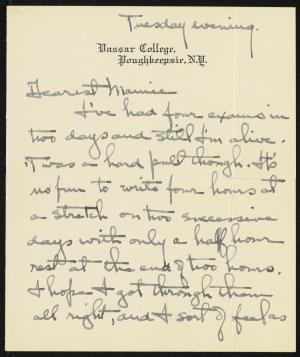 Tuesday evening.
Vassar College,
Poughkeepsie, N.Y.
Dearest Mamie
I've had four exams in
two days and still I'm alive.
'Twas a hard pull though. It's
no fun to write four hours at
a stretch on two successive
days with only a half hour
rest at the end of two hours.
I hope I got through them
all right, and I sort of feel as